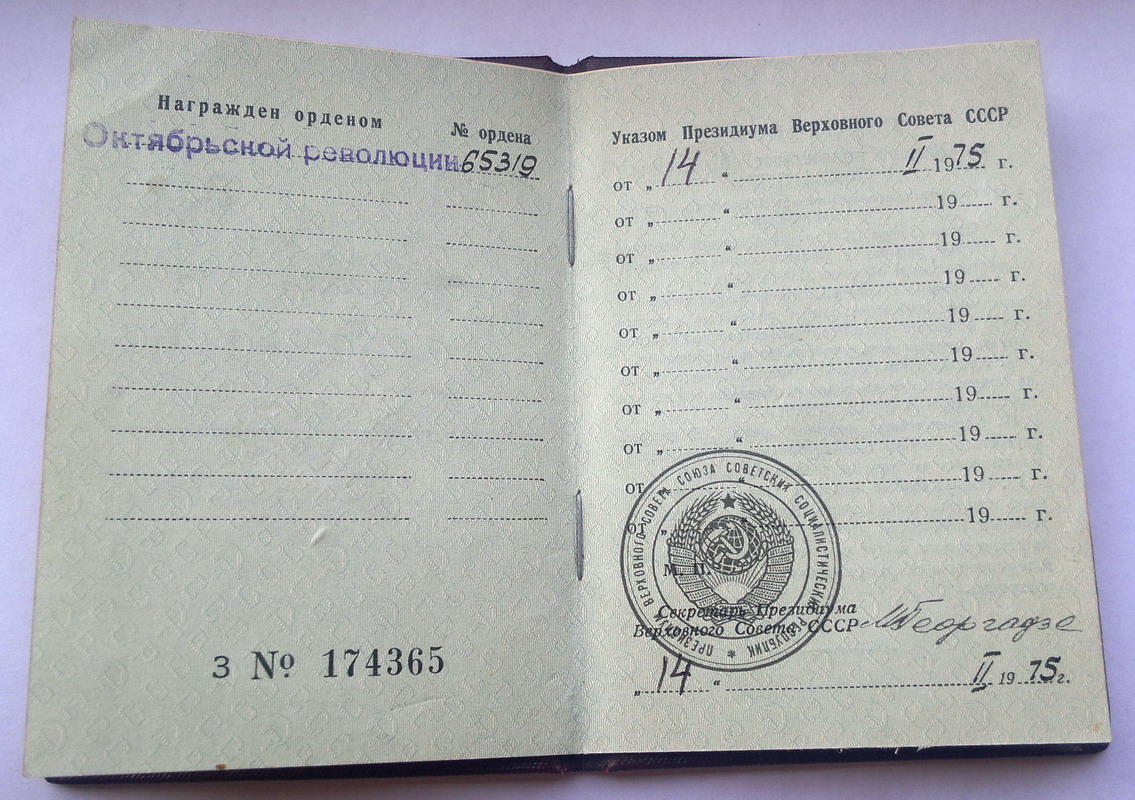 Награжден орденом
№ ордена
Октябрьской революции 65319
З № 174365
Указом Президиума Верховного Совета СССР
от „ 14 “ II 1975 г.
от „ “ 19 г.
от „ “ 19 г.
от „ “ 19 г.
от „ “ 19 г.
от „ “ 19 г.
от „ “ 19 г.
от „ “ 19 г.
от „ “ 19 г.
от „ “ 19 г.
ПРЕЗИДИУМ ВЕРХОВНОГО СОВЕТА СОЮЗА СОВЕТСКИХ СОЦИАЛИСТИЧЕСКИХ РЕСПУБЛИК *
М. П.
Секретарь Президиума
Верховного Совета СССР МГеоргадзе
„ 14 “ II 1975 г.